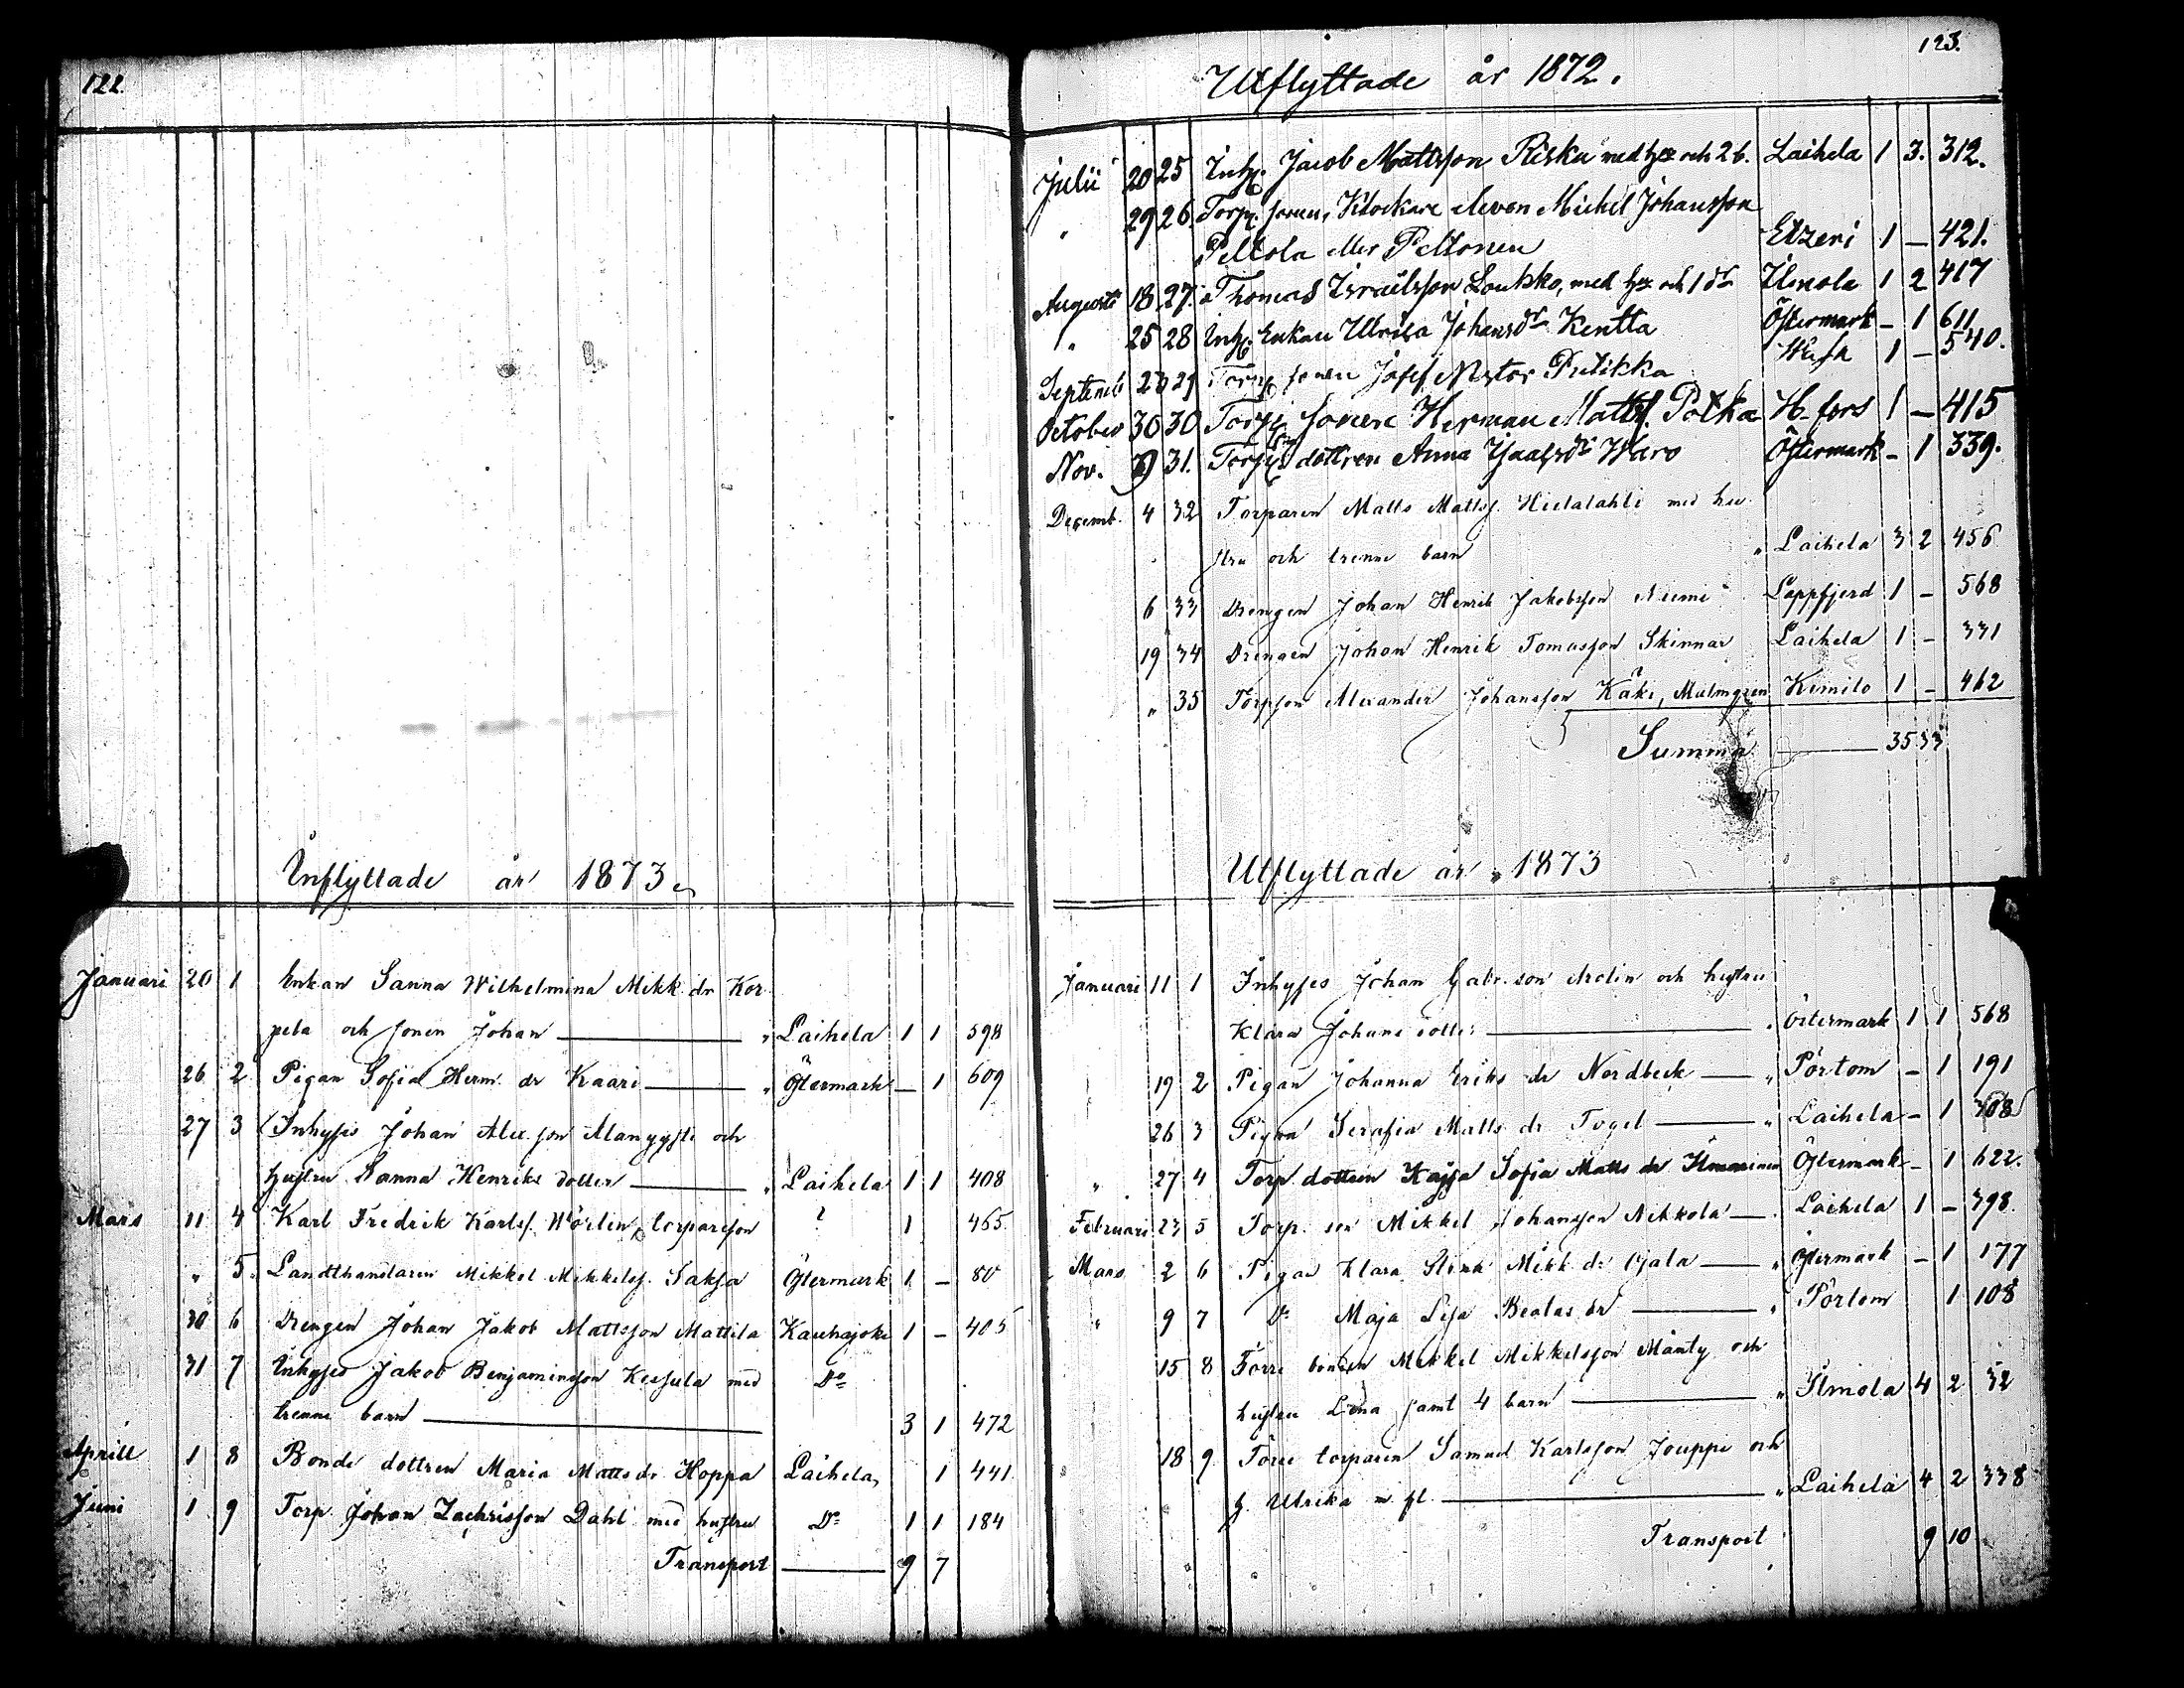 122
Inflyttade år 1873
Januari 20 1 Enkan Sanna Wilhelmina Mikk. dr Kor-
pela och sonen Johan " Laihela 1 1 598
26 2 Pigan Sofia Herm. dr Kaari " Östermark — 1 609
27 3 Inhyses Johan Alex. son Alanyysti och
hustru Sanna Henriks dotter " Laihela 1 1 408
Mars 11 4 Karl Fredrik Karlss. Wörlin, torpareson ? 1 465
" 5 Landthandlaren Mikkel Mikkelss. Saksa Östermark 1 — 80
30 6 Drengen Johan Jakob Mattsson Mattila Kauhajoki 1 — 405
31 7 Inhyses Jakob Benjaminsson Keisula med Do
trenne barn 3 1 472
Aprill 1 8 Bonde dottren Maria Matts dr Hoppa Laihela, 1 441
Juni 1 9 Torp. Johan Zachrisson Dahl med hustru Do 1 1 184
Transport 9 7
123.
Utflyttade år 1872.
Julii 20 25 Inh. Jacob Mattsson Riska med h. och 2 b. Laihela 1 3. 312.
" 29 26. Torp. sonen, Klockare eleven Mickel Johansson
Peltola eller Peltonen Etzeri 1 — 421.
Augusti 18 27. Thomas Israelsson Loukko, med h. och 1 dr Ilmola 1 2 417
" 25 28 Inh. Enkan Ulrika Johansdr Kentta Östermark — 1 611
Septemb 29 Torp. sonen Josef Nestor Pulikka Wasa 1 — 540.
October 30 30 Torp. sonen Herman Matts. Potka H.fors 1 — 415
Nov. 31. Torp. dottren Anna Isaksdr Waro Östermark — 1 339.
Decemb. 4 32 Torparen Matts Mattss. Hietalahti med hu-
stru och trenne barn " Laihela 3 2 456
6 33 Drengen Johan Henrik Jakobsson Niemi Lappfjerd 1 — 568
19 34 Drengen Johan Henrik Tomasson Skinnar Laihela 1 — 331
" 35 Torpson Alexander Johansson Käki, Malmgren Kimito 1 — 462
Summa 35 33
Utflyttade år 1873
Januari 11 1 Inhyses Johan Gabr. son Arolin och hustru
Klara Johans dotter " Östermark 1 1 568
19 2 Pigan Johanna Eriks dr Nordbeck " Pörtom — 1 191
26 3 Pigan Serafia Matts dr Fogel " Laihela — 1 308
" 27 4 Torp dottren Kajsa Sofia Matts dr Ilmarinen Östermark — 1 622.
Februari 23 5 Torp. son Mikkel Johansson Nikkola Laihela 1 — 398.
Mars 2 6 Pigan Klara Stina Mikk dr Ojala " Östermark — 1 177
" 9 7 Do Maja Lisa Beatas dr " Pörtom 1 108
15 8 Förre bonden Mikkel Mikkelsson Mänty och
hustru Lena samt 4 barn " Ilmola 4 2 32
18 9 Förre torparen Samuel Karlsson Jouppi och
h. Ulrika m. fl. " Laihela 4 2 338
Transport 9 10